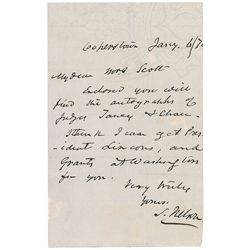 Cooperstown Jany. 6/70
My dear Mrs Scott
Enclosed you will
find the autographs of
Judges Taney & Chase
I think I can get Pres-
ident Lincoln's, and
Grants at Washington
for you.
Very truly
Yours.
S. Nelson